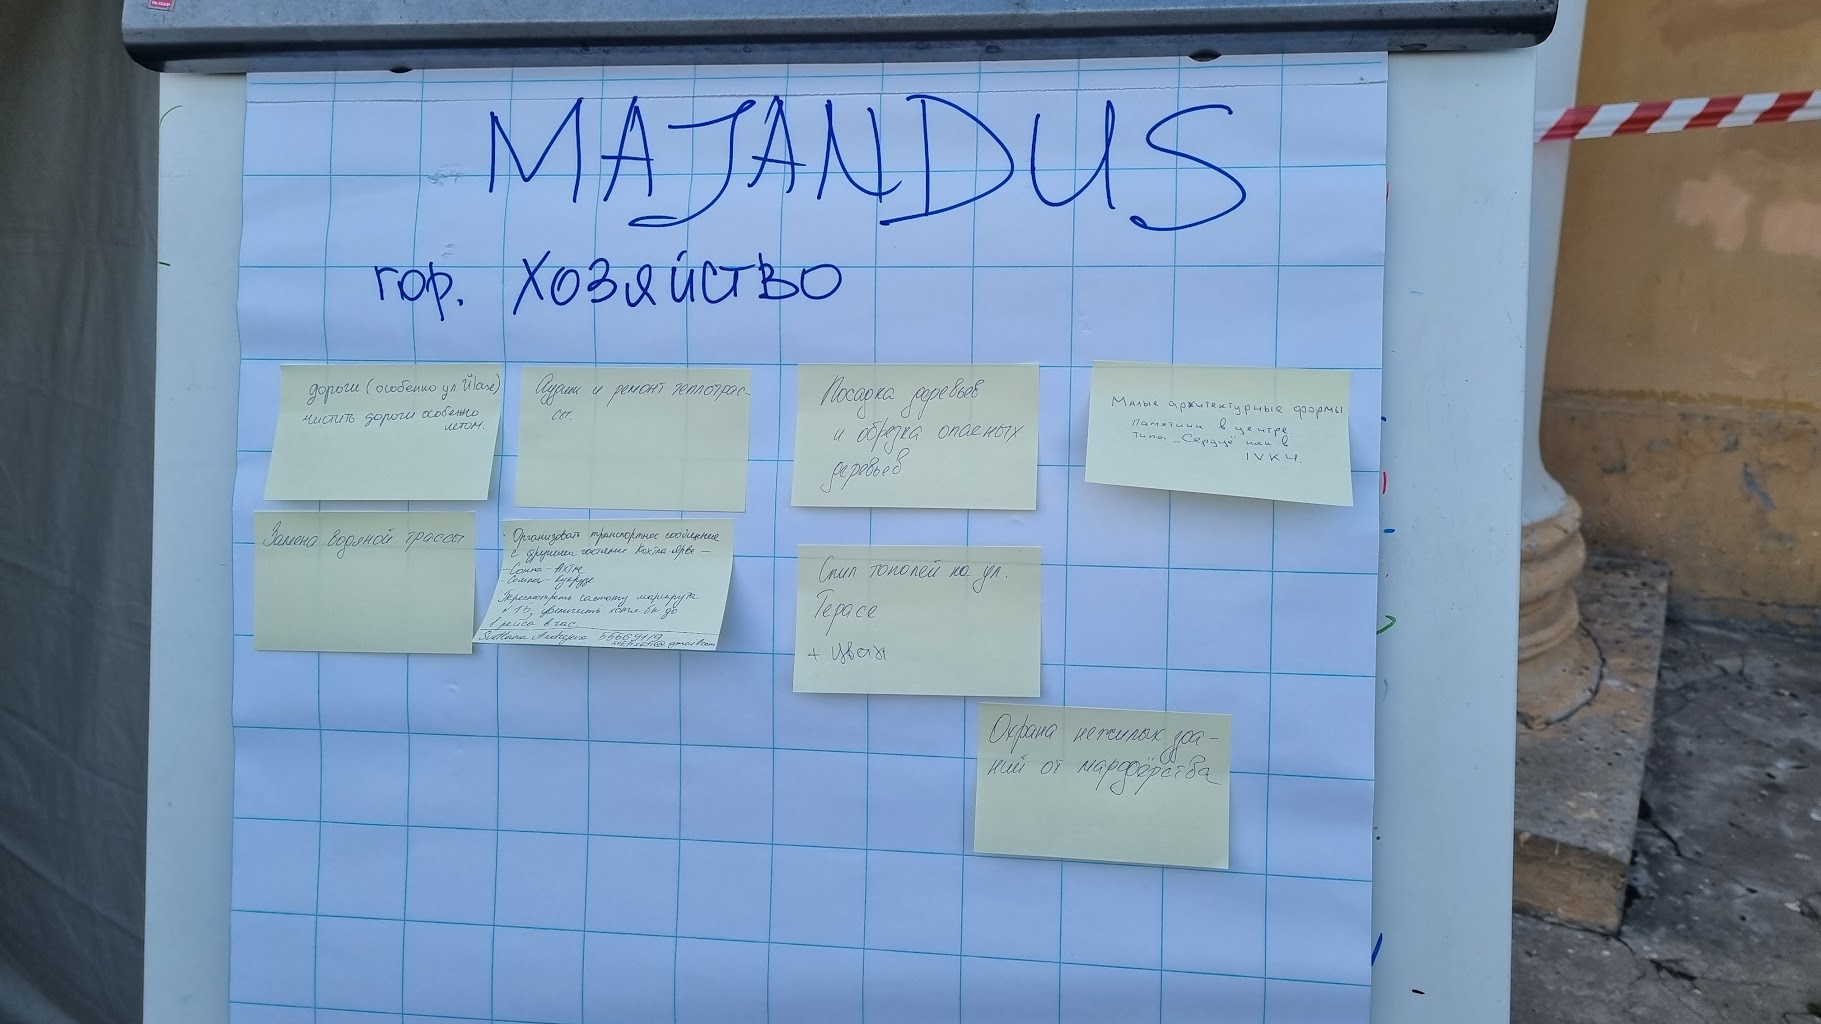 MAJANDUS
гор. хозяйство
дороги (особенно ул
чистить дороги особенно
летом.
Аудит и ремонт теплотрас-
сы.
Посадка деревьев
и обрезка опасных
деревьев
Малые архитектурные формы.
памятники в центре.
типа "Сердце" или в
IVKH.
Замена водяной трассы
Организовать транспортное сообщение
с другими частями Кохтла-Ярве —
- Сомпа - Ахтме
- Сомпа - Кукрузе
Пересмотреть частоту маршрута
№15, увеличить хотя бы до
1 рейса в час
Svetlana
Спил тополей на ул.
Терасе
+ цветы
Охрана нежилых зда-
ний от мародёрства